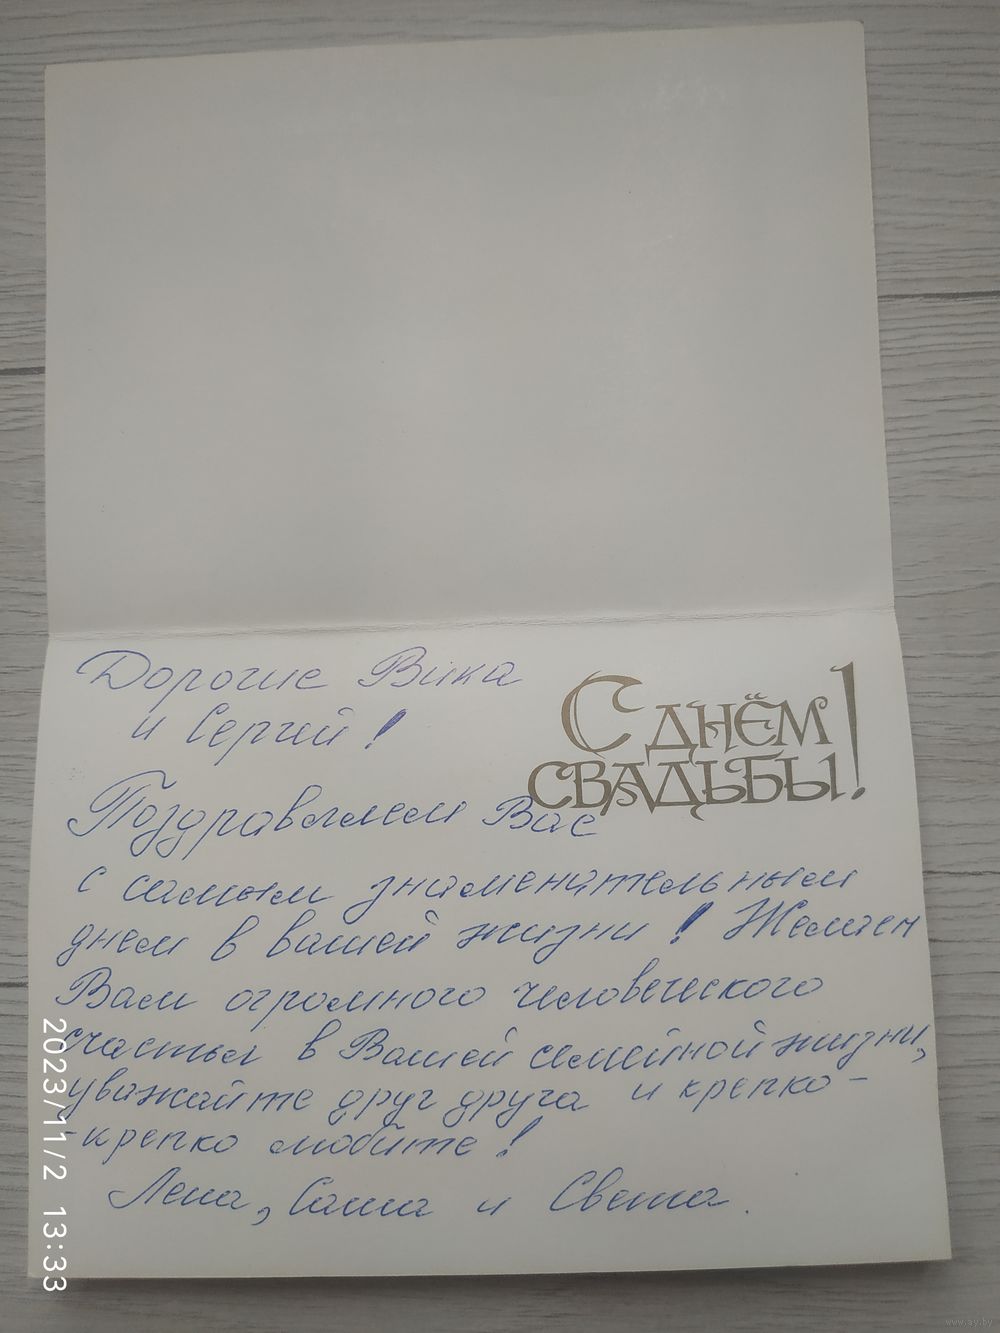 Дорогие Вика
и Сергей!
С ДНЁМ
СВАДЬБЫ!
Поздравляем Вас
с самым знаменительным
днем в вашей жизни! Желаем
Вам огромного человеческого
счастья в Вашей семейной жизни,
уважайте друг друга и крепко-
-крепко любите!
Лена, Саша и Света.
2023/11/2 13:33
www.ay.by